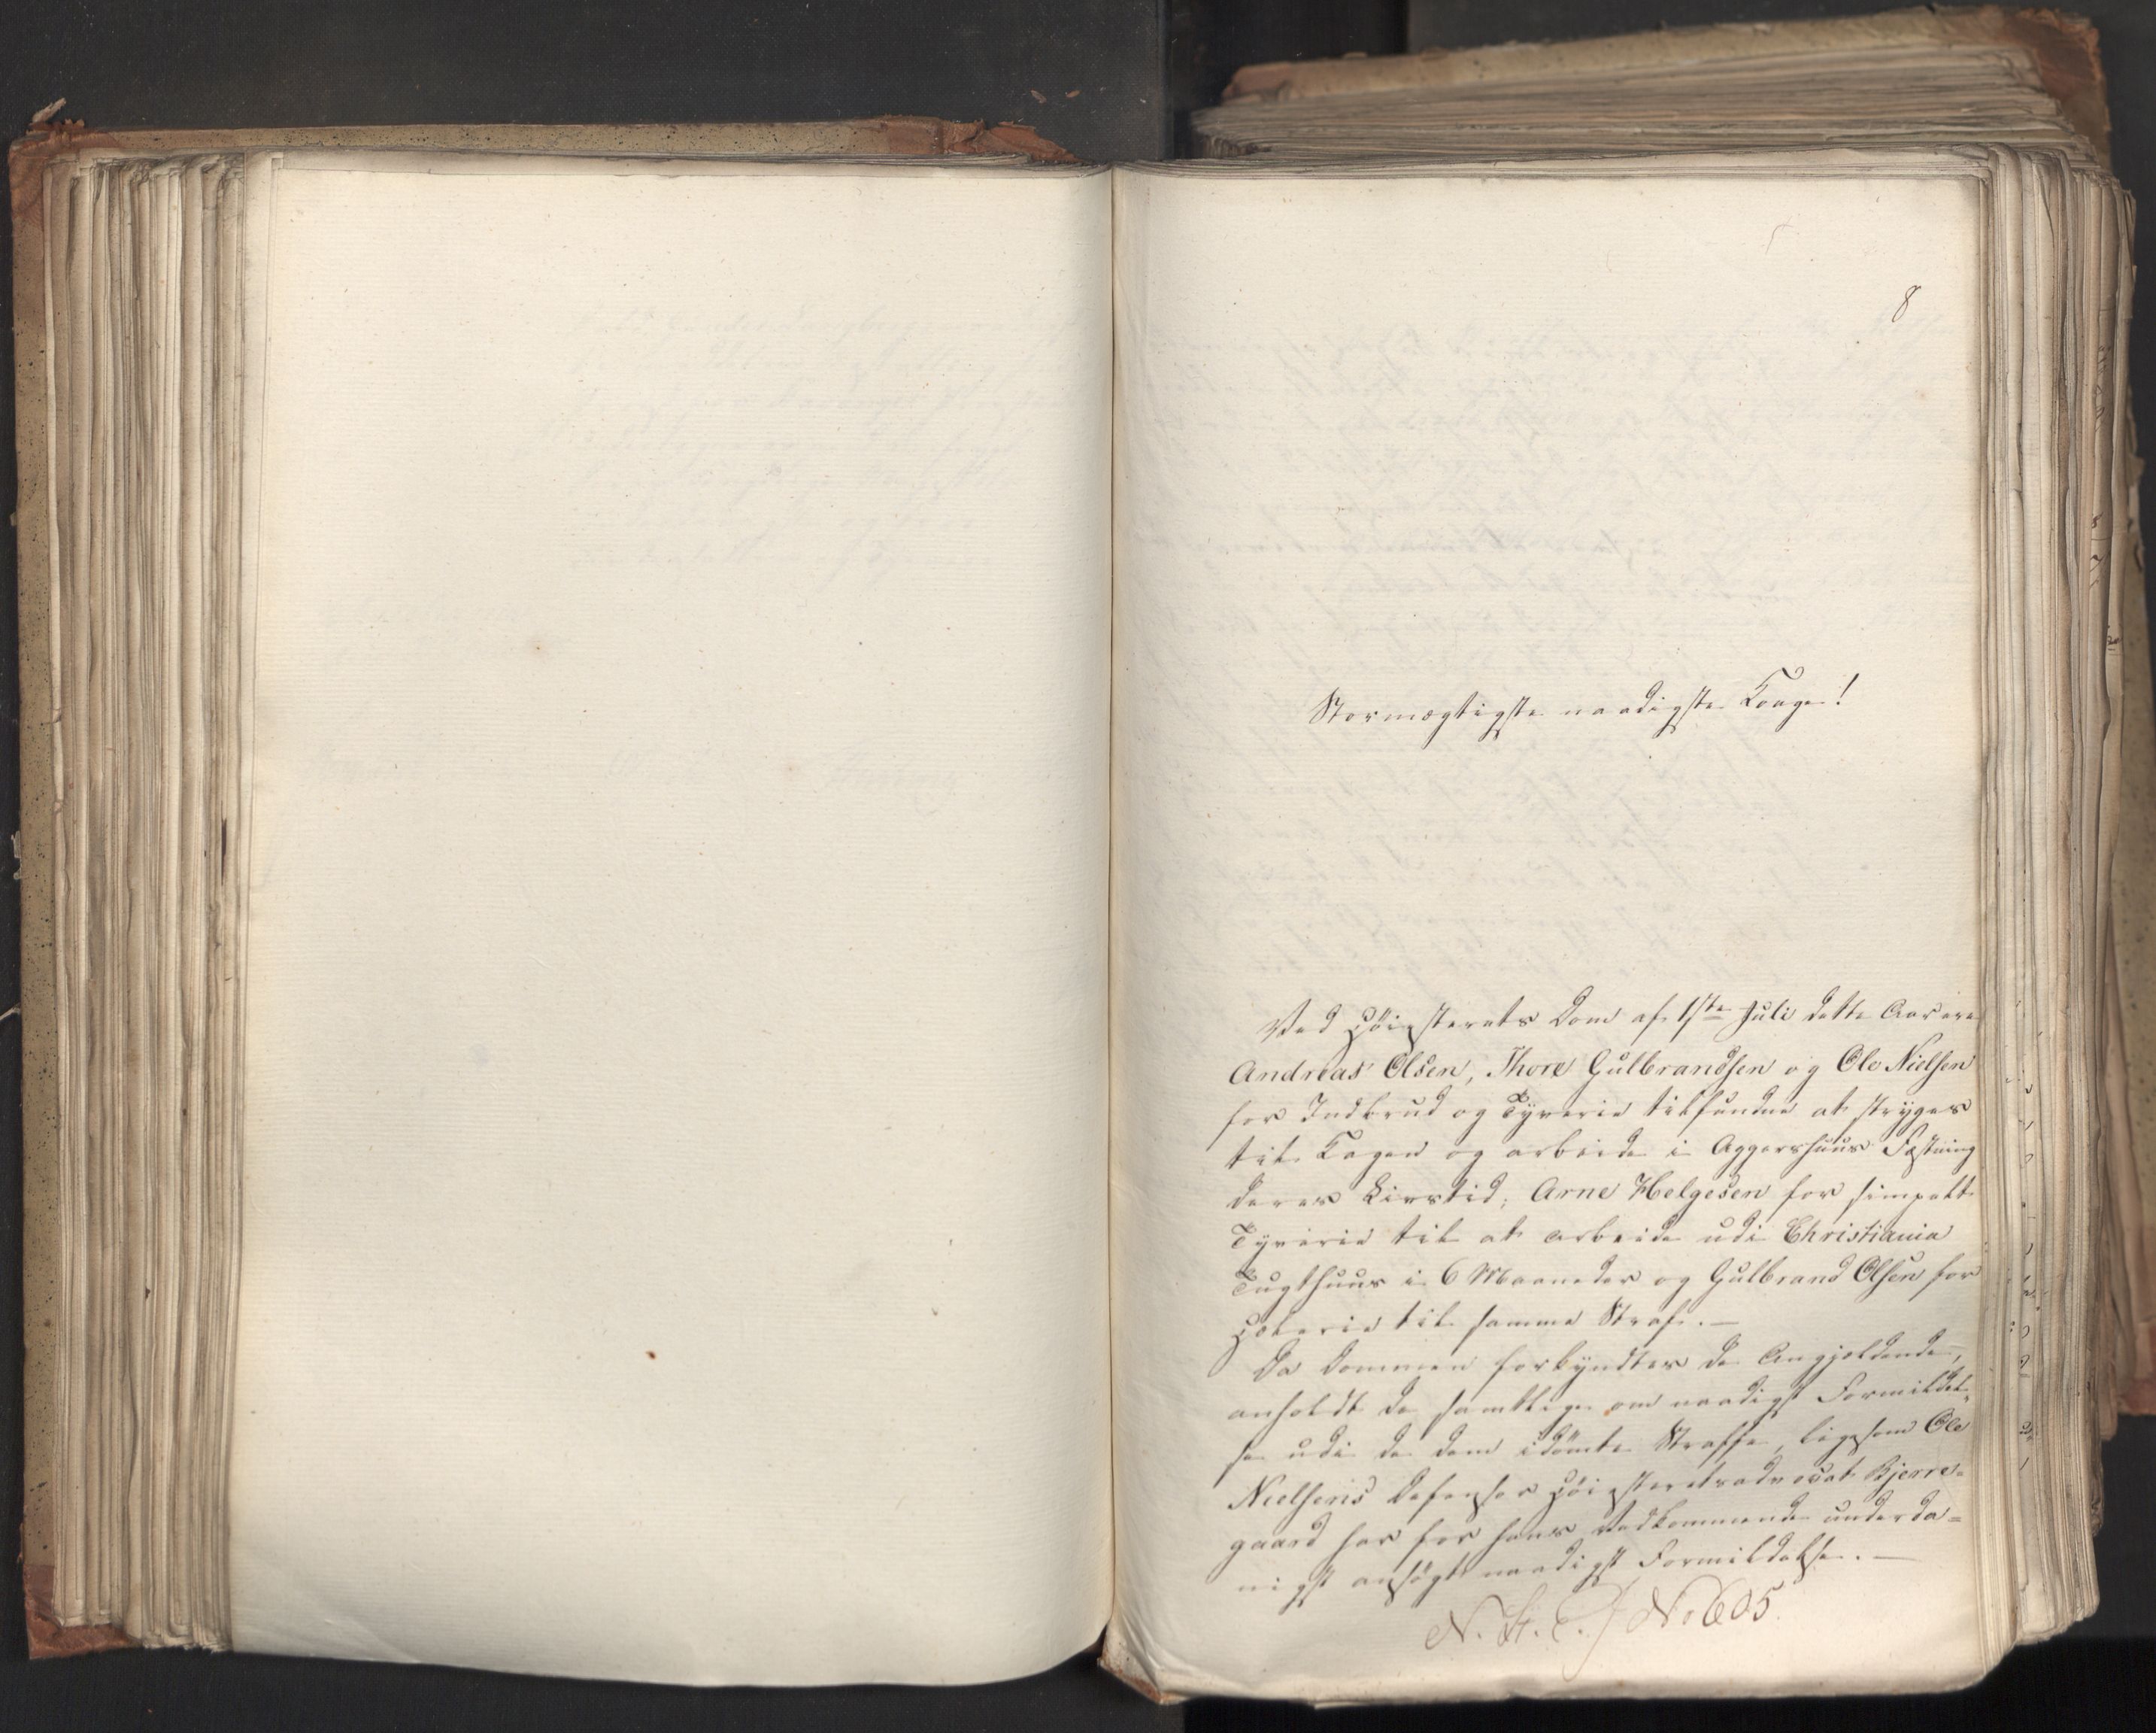 8
Stormægtigste naadigste Konge!
Ved Høiesterets Dom af 1ste Juli dette Aar ere
Andreas Olsen, Thore Gulbrandsen og Ole Nielsen
for Indbrud og Tyverie tilfundne at stryges
til Kagen og arbeide i Aggershuus Fæstning
deres Livstid; Arne Helgesen for simpelt
Tyverie til at arbeide udi Christiania
Tugthuus i 6 Maaneder og Gulbrand Olsen for
Hælerie til samme Straf. —
Da Dommen forkyndtes de Angjældende,
anholdt de samtlige om naadigst Formildel-
se udi de dem idömte Straffe, ligesom Ole
Nielsens Defensor Høiesteretsadvocat Bjerre-
gaard har for hans Vedkommende underda-
nigst ansøgt naadigst Formildelse. —
N. St. C. J No 605.